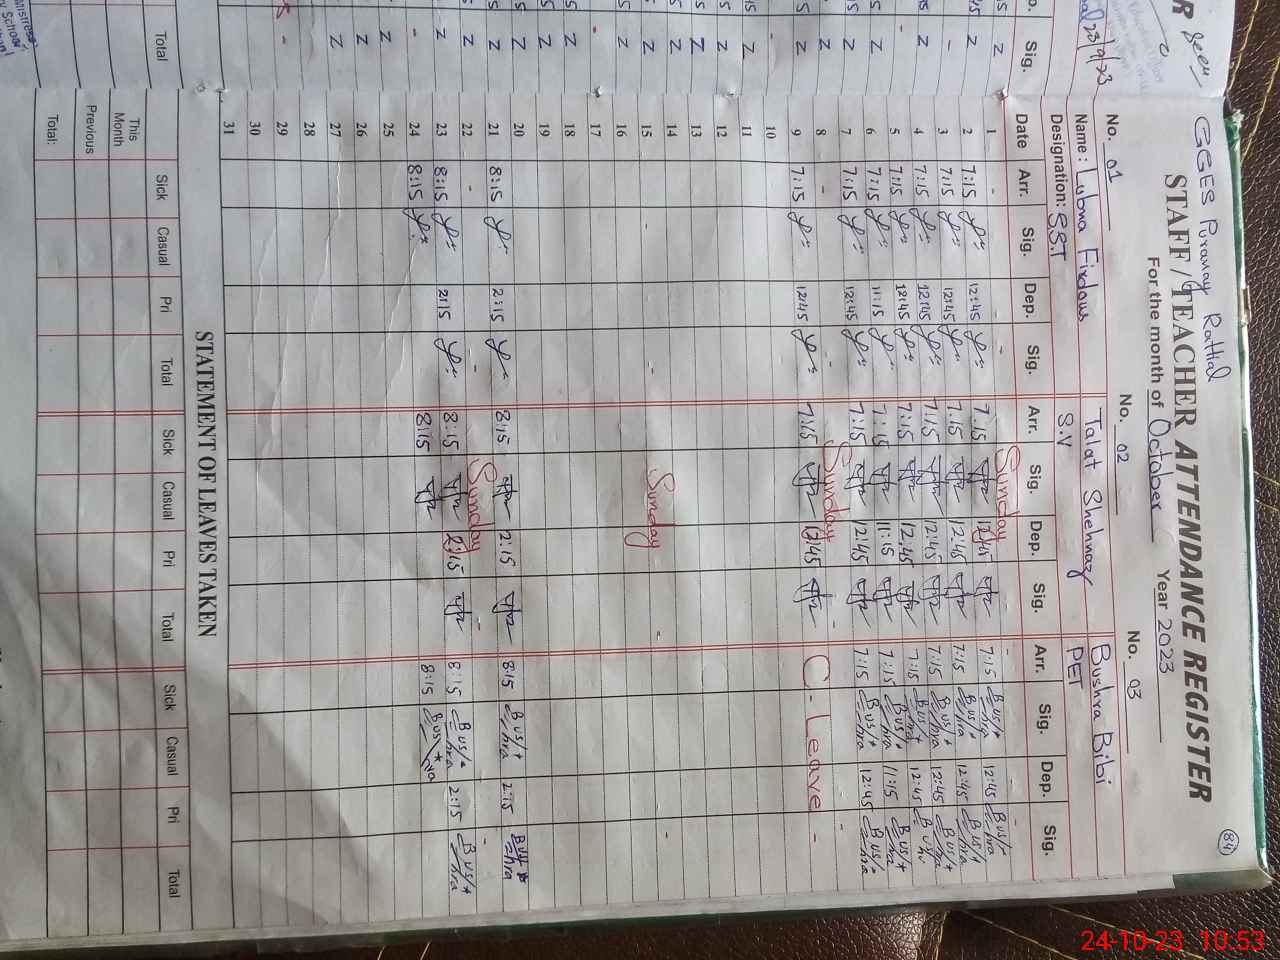 84
GGES Puranay Rattial
STAFF / TEACHER ATTENDANCE REGISTER
For the month of October Year 2023
No. 01 No. 02 No. 03
Name: Lubna Firdous Talat Shehnaz Bushra Bibi
Designation: S.S.T S.V PET
Date Arr. Sig. Dep. Sig. Arr. Sig. Dep. Sig. Arr. Sig. Dep. Sig.
1 - Sunday -
2 7:15 12:45 7:15 12:45 7:15 Bushra 12:45 Bushra
3 7:15 12:45 7:15 12:45 7:15 Bushra 12:45 Bushra
4 7:15 12:45 7:15 12:45 7:15 Bushra 12:45 Bushra
5 7:15 12:45 7:15 12:45 7:15 Bushra 12:45 Bushra
6 7:15 11:15 7:15 11:15 7:15 Bushra 11:15 Bushra
7 7:15 12:45 7:15 12:45 7:15 Bushra 12:45 Bushra
8 - - Sunday - -
9 7:15 12:45 7:15 12:45 C - Leave -
10
11
12
13
14
15 - - Sunday - -
16
17
18
19
20
21 8:15 2:15 8:15 2:15 8:15 Bushra 2:15 Bushra
22 - - Sunday - -
23 8:15 2:15 8:15 2:15 8:15 Bushra 2:15 Bushra
24 8:15 8:15 8:15 Bushra
25
26
27
28
29
30
31
STATEMENT OF LEAVES TAKEN
Sick Casual Pri Total Sick Casual Pri Total Sick Casual Pri Total
This Month
Previous
Total:
Sig.
Total
24-10-23 10:53